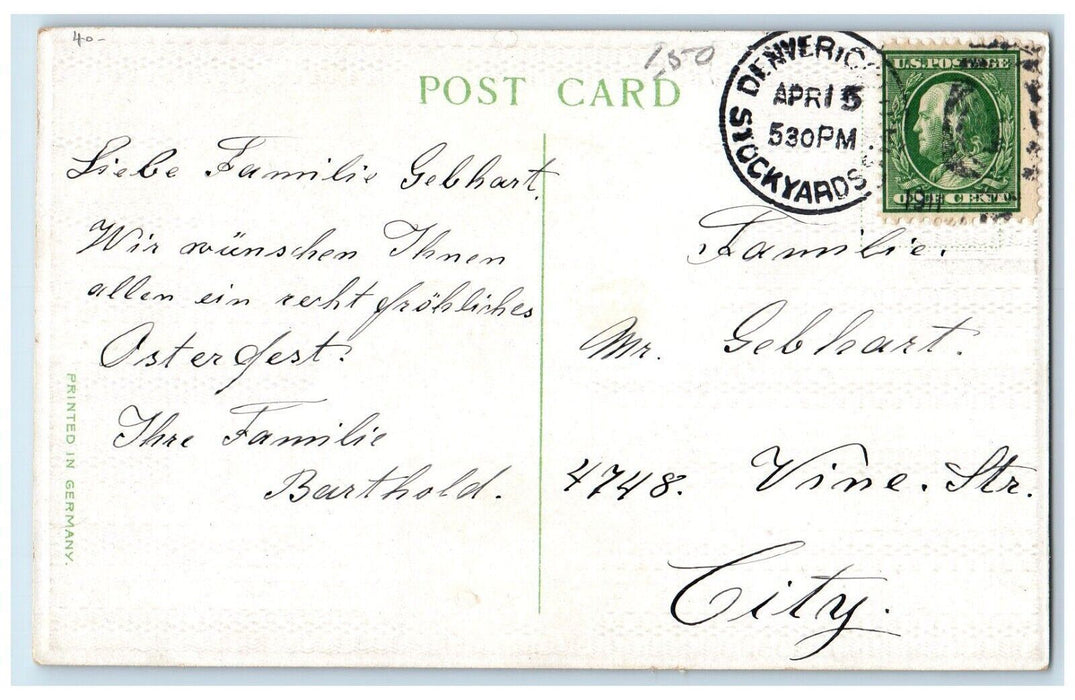 40-
1,50
POST CARD
DENVER
APR 15
530PM
STOCKYARDS
1911
U.S. POSTAGE
ONE CENT
Liebe Familie Gebhart,
Wir wünschen Ihnen
allen ein recht fröhliches
Osterfest.
Ihre Familie
Barthold.
Familie.
Mr. Gebhart.
4748. Vine. Str.
City.
PRINTED IN GERMANY.